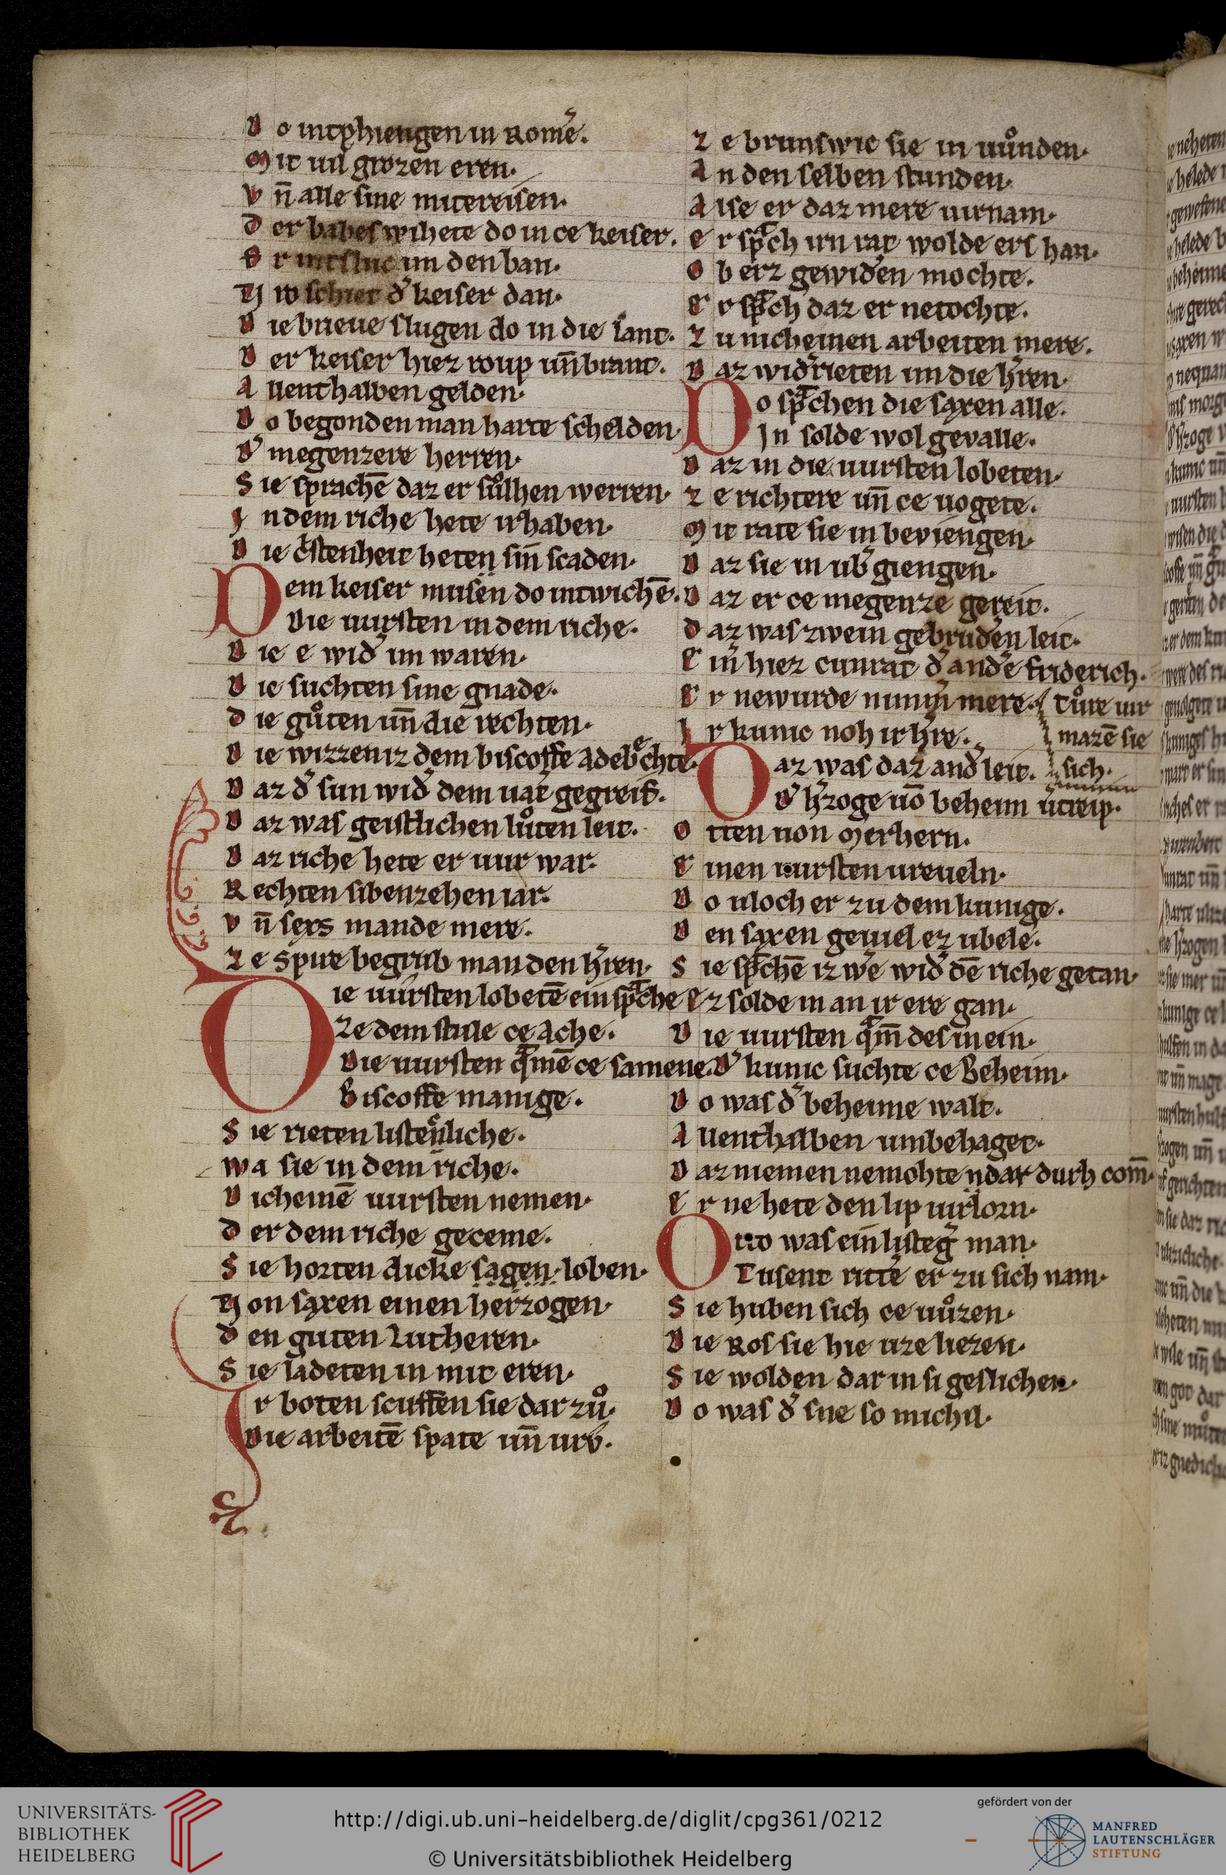 Do intphiengen in Rome͛.
Mit uil grozen eren.
Vn̄ alle sine mitereisen.
Der babes wihete do in ce keiser.
Er intsluc im den ban.
Wi schiet d͛ keiser dan.
Die brieue slugen do in die lant.
Der keiser hiez roup un̄ brant.
Allenthalben gelden.
Do begonden man harte schelden.
D͛ megenzere herren.
Sie sprachē daz er sůlhen werren.
In dem riche hete irhaben.
Die cͬstenheit heten sin̄ scaden.
Dem keiser musen do intwichē.
Die uursten in dem riche.
Die e wid͛ im waren.
Die suchten sine gnade.
Die gůten un̄ die rechten.
Die wizzen iz dem biscoffe adeb͛chte.
Daz d͛ sun wid͛ dem uat͛ gegreif.
Daz was geistlichen lůten leit.
Daz riche hete er uur war.
Rechten sibenzehen iar.
Vn̄ sexs mande mere.
Ze Spire begrub man den h͛ren.
Die uursten lobetē ein spͣche
Ze dem stule ce Ache.
Die uursten qͣmē ce samene.
Biscoffe manige.
Sie rieten listenliche.
Wa sie in dem riche.
Dicheinē uursten nemen.
Der dem riche geceme.
Sie horten dicke sagen. loben.
Von saxen einen herzogen.
Den guten Lutheren.
Sie ladeten in mit eren.
Ir boten scuffen sie dar zů.
Die arbeitē spate un̄ urů.
Ze brunswic sie in uůnden.
An den selben stunden.
Alse er daz mere uirnam.
Er spͣch irn rat wolde ers han.
Ob erz gewid͛en mochte.
Er spͣch daz er netochte.
Zu nicheinen arbeiten mere.
Daz wid͛rieten im die h͛ren.
Do spͣchen die saxen alle.
In solde wol gevalle.
Daz in die uursten lobeten.
Ze richtere un̄ ce uogete.
Mit rate sie in beviengen.
Daz sie in ub͛ giengen.
Daz er ce megenze gereit.
Daz was zwein gebrud͛en leit.
Ein͛ hiez cunrat d͛ and͛e friderich.
Er newurde nimm͛ mere. tůre uir
Ir kunic noh ir h͛re. mazē sie
Daz was daz and͛ leit. sich.
D͛ h͛zoge uō beheim
Otten uon Merhern.
Einen uursten ureueln.
Do uloch er zu dem kunige.
Den saxen geuiel ez ubele.
Sie spͣchē iz w͛e wid͛ dē riche getan
Ez solde in an ir ere gan.
Die uursten qͣm̄ des in ein.
D͛ kunic suchte ce Beheim.
Do was d͛ beheime walt.
Allenthalben umbehaget.
Daz niemen nemohte dar durh com̄.
Er ne hete den lip uirlorn.
Otto was ein listeg͛ man.
Tusent ritt͛e er zu sich nam.
Sie huben sich ce uůzen.
Die Ros sie hie uze liezen.
Sie wolden dar in si geslichen.
Do was d͛ sne so michil.
UNIVERSITÄTS-
BIBLIOTHEK
HEIDELBERG
http://digi.ub.uni-heidelberg.de/diglit/cpg361/0212
© Universitätsbibliothek Heidelberg
gefördert von der
MANFRED
LAUTENSCHLÄGER
STIFTUNG